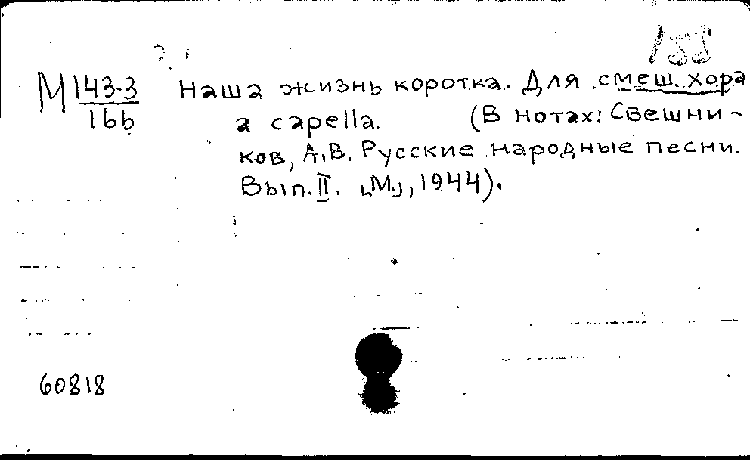 155
М 143-3 Наша жизнь коротка. Для смеш. хора
166 a capella. (В нотах: Свешни-
ков, А.В. Русские народные песни.
Вып. II. [М.], 1944).
60818